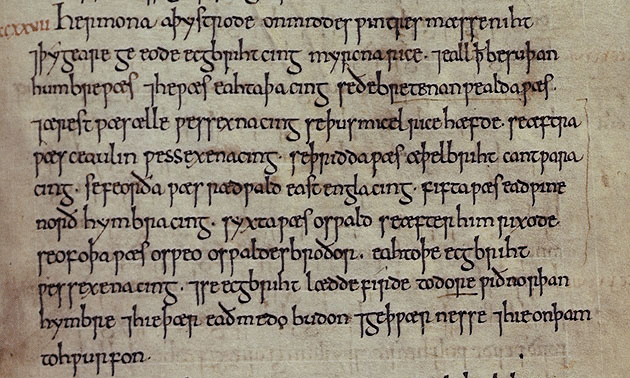 ccxxvii Her mona aþystrode on middes ƿintres mæsse niht
⁊ þy geare ge eode ecgbriht cing myrcna rice· ⁊ eall ꝥ be suþan
humbre ƿæs ⁊ he ƿæs eahtaþa cing se ðe bretenanƿealda ƿæs·
⁊ ærest ƿæs ælle ƿessexna cing se þus micel rice hæfde· se æftra
ƿæs ceaulin ƿessexena cing· se þridda ƿæs æþelbriht cantƿara
cing· se feorða ƿæs rædƿald east engla cing· fifta ƿæs eadƿine
norðhymbra cing· syxta ƿæs osƿald se æfter him rixode·
seofoþa ƿæs osƿeo osƿaldes broðor· eahtoþe ecgbriht
ƿessexena cing· ⁊ se ecgbriht lædde firde to dore ƿið norþan
hymbre ⁊ hie þær eaðmedo budon ⁊ geþƿærnesse ⁊ hie on þam
tohƿurfon·